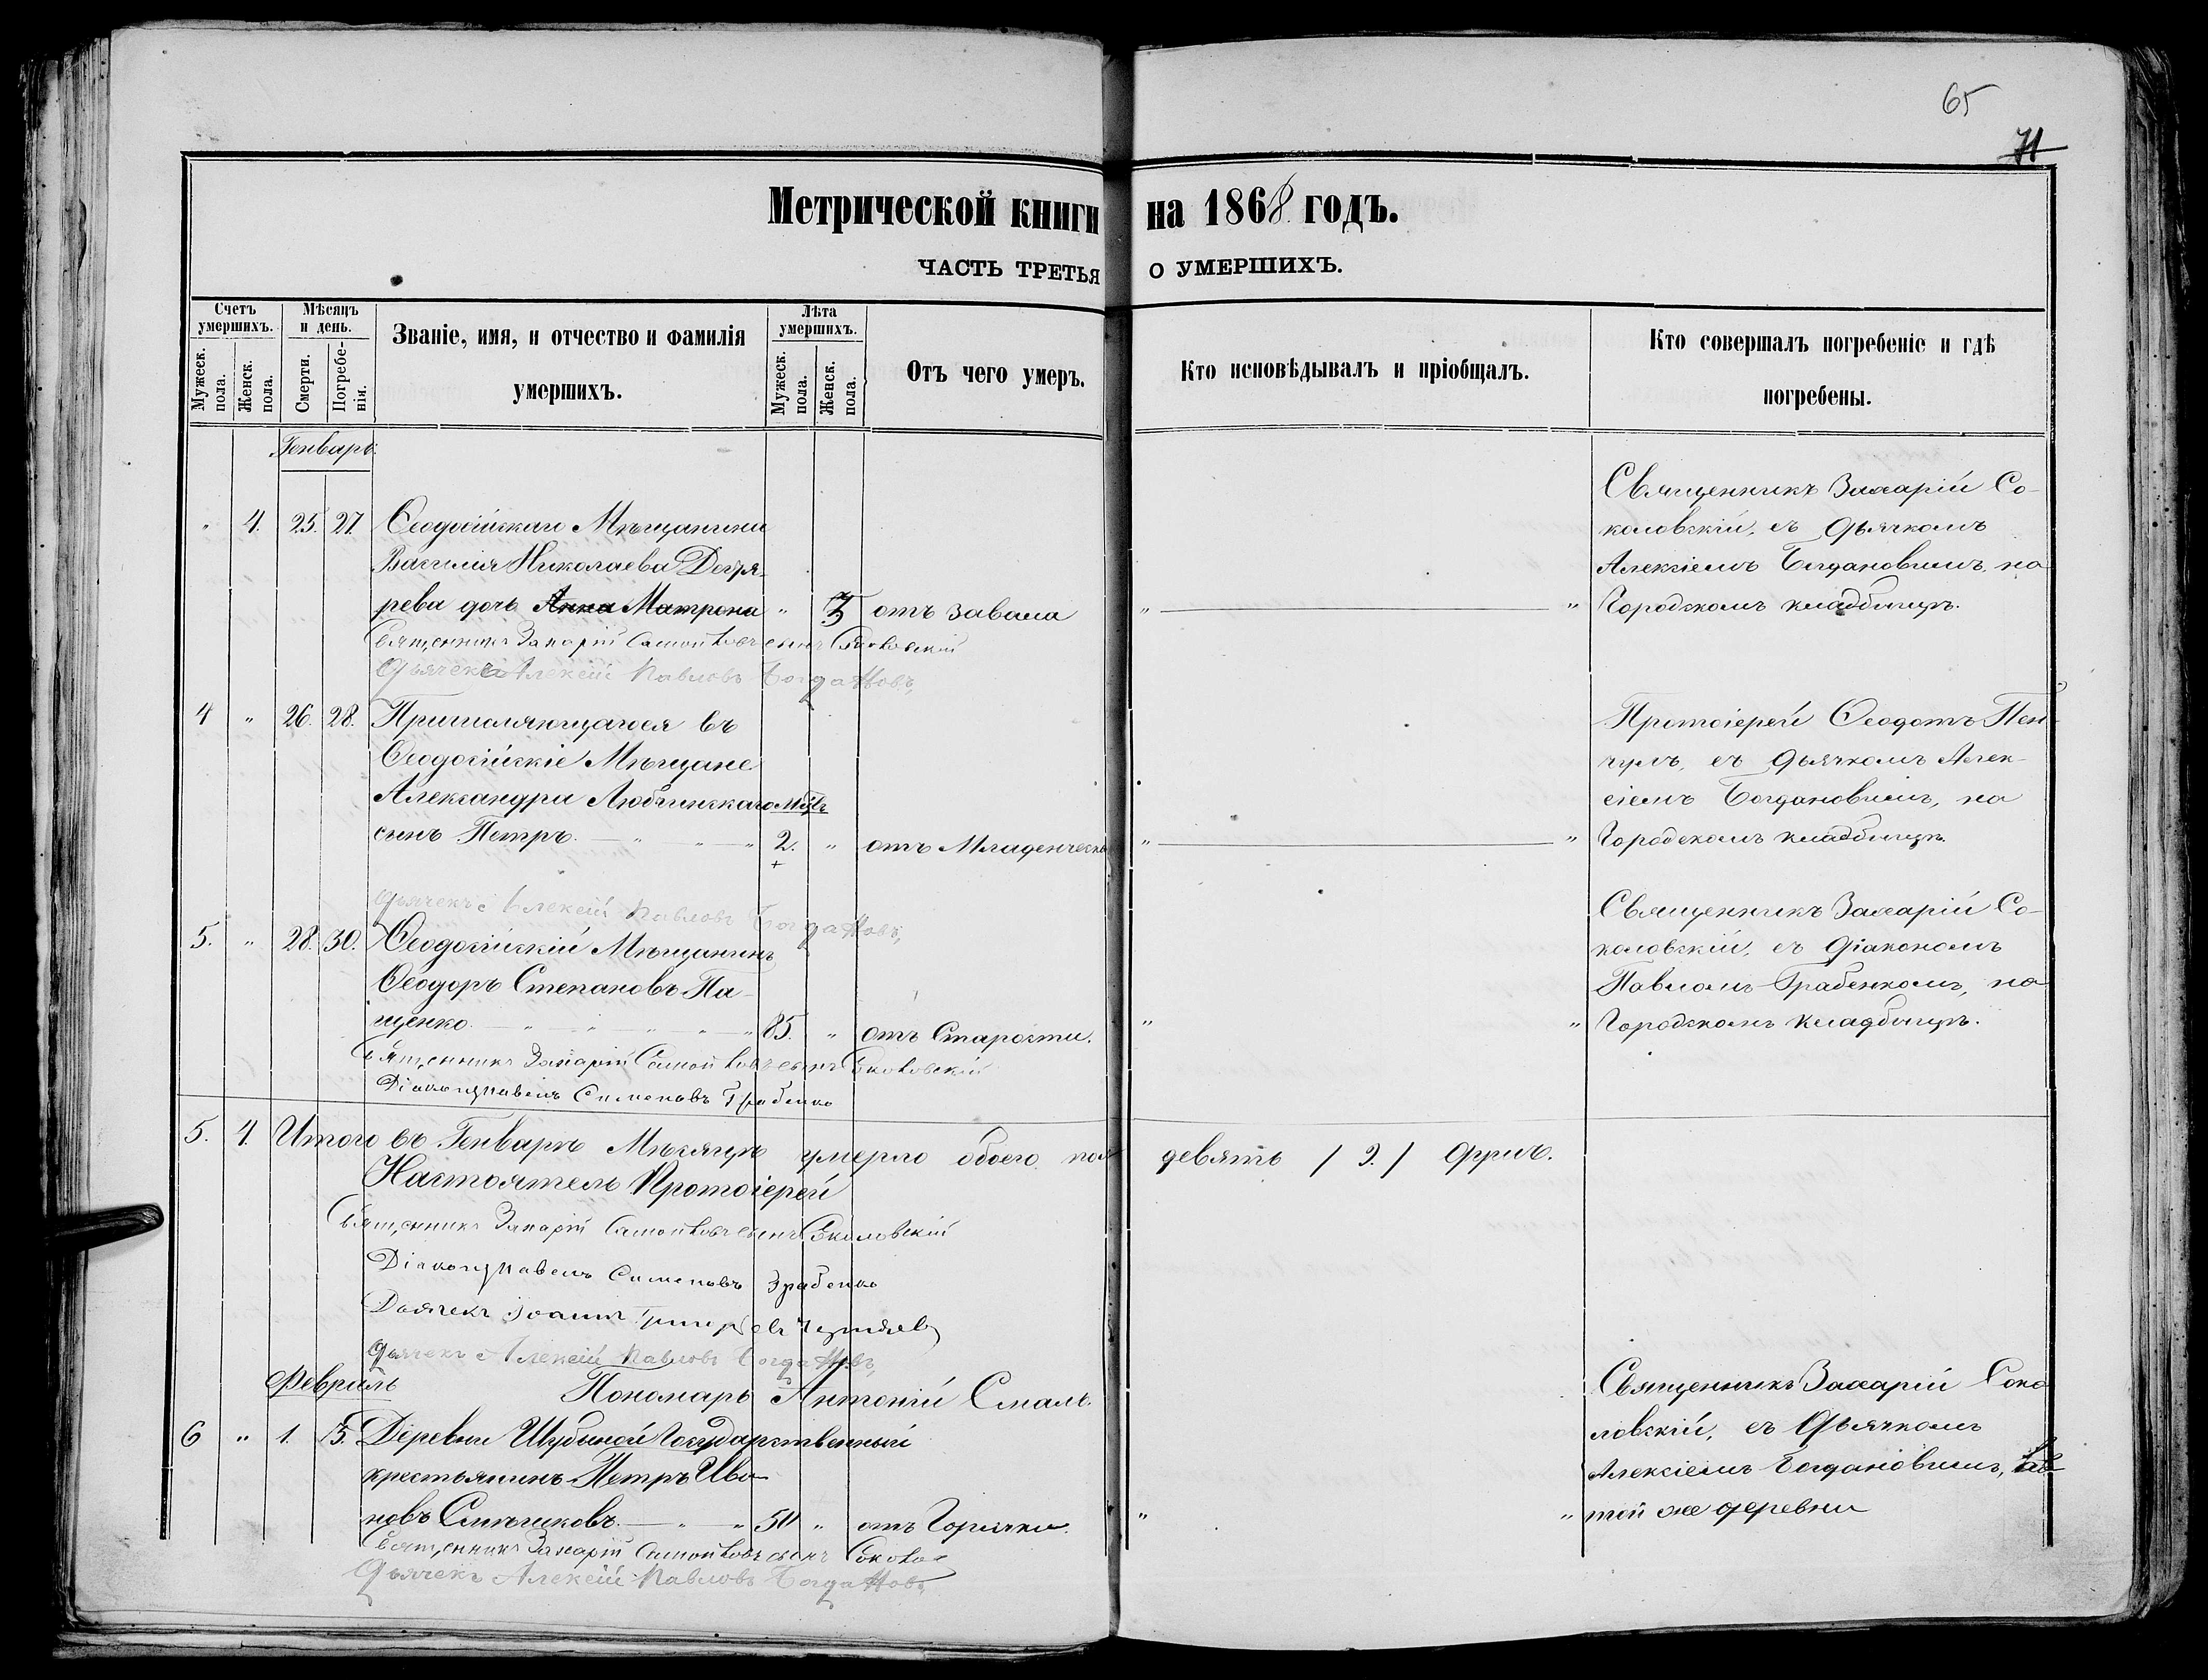 65
71
Метрической книги на 1868 годъ.
ЧАСТЬ ТРЕТЬЯ О УМЕРШИХЪ.
Счетъ умершихъ.
Мужеск. пола.
Женск. пола.
Мѣсяцъ и день.
Смерти.
Погребенія.
Званіе, имя, и отчество и фамилія
умершихъ.
Лѣта умершихъ.
Мужеск. пола.
Женск. пола.
Отъ чего умеръ.
Кто исповѣдывалъ и пріобщалъ.
Кто совершалъ погребеніе и гдѣ
погребены.
Генварь
" 4. 25. 27. Ѳеодосійскаго Мѣщанина
Василія Николаева Дегтя-
рева дочь Анна Матрона " 3 отъ завала " "
Священникъ Захарій Со-
коловскій, съ дьячкомъ
Алексіемъ Богдановымъ, на
Городскомъ кладбищѣ.
Священникъ Захарій Самойловъ сынъ Соколовскій
Дьячекъ Алексій Павловъ Богдановъ
4 " 26. 28. Причисляющагося въ
Ѳеодосійскіе Мѣщане
Александра Любчинскаго мѣс
сынъ Петръ. " " " 2. " отъ Младенческой " "
Протоіерей Ѳеодотъ
съ дьячкомъ Алек-
сіемъ Богдановымъ, на
Городскомъ кладбищѣ.
Дьячекъ Алексій Павловъ Богдановъ
5. " 28. 30. Ѳеодосійскій Мѣщанинъ
Ѳеодоръ Степановъ Па-
щенко. 85. " отъ Старости. " "
Священникъ Захарій Со-
коловскій, съ діакономъ
Павломъ Грабенкомъ, на
Городскомъ кладбищѣ.
Священникъ Захарій Самойловъ сынъ Соколовскій
Діаконъ Павелъ Симеоновъ Грабенко
5. 4. Итого въ Генварѣ Мѣсяцѣ умерло обоего пола девять / 9. / душъ.
Настоятель Протоіерей
Священникъ Захарій Самойловъ сынъ Соколовскій
Діаконъ Павелъ Симеоновъ Грабенко
Дьячекъ Іоаннъ
Дьячекъ Алексій Павловъ Богдановъ
Пономарь Антоній Смаль.
Февраль
6 " 1. 3. Деревни Шубиной Государственный
крестьянинъ Петръ Ива-
новъ " " 50 " отъ Горячки. " "
Священникъ Захарій Соко
ловскій, съ Дьячкомъ
Алексіемъ Богдановымъ, въ
той же деревни
Священникъ Захарій Самойловъ сынъ
Дьячекъ Алексій Павловъ Богдановъ